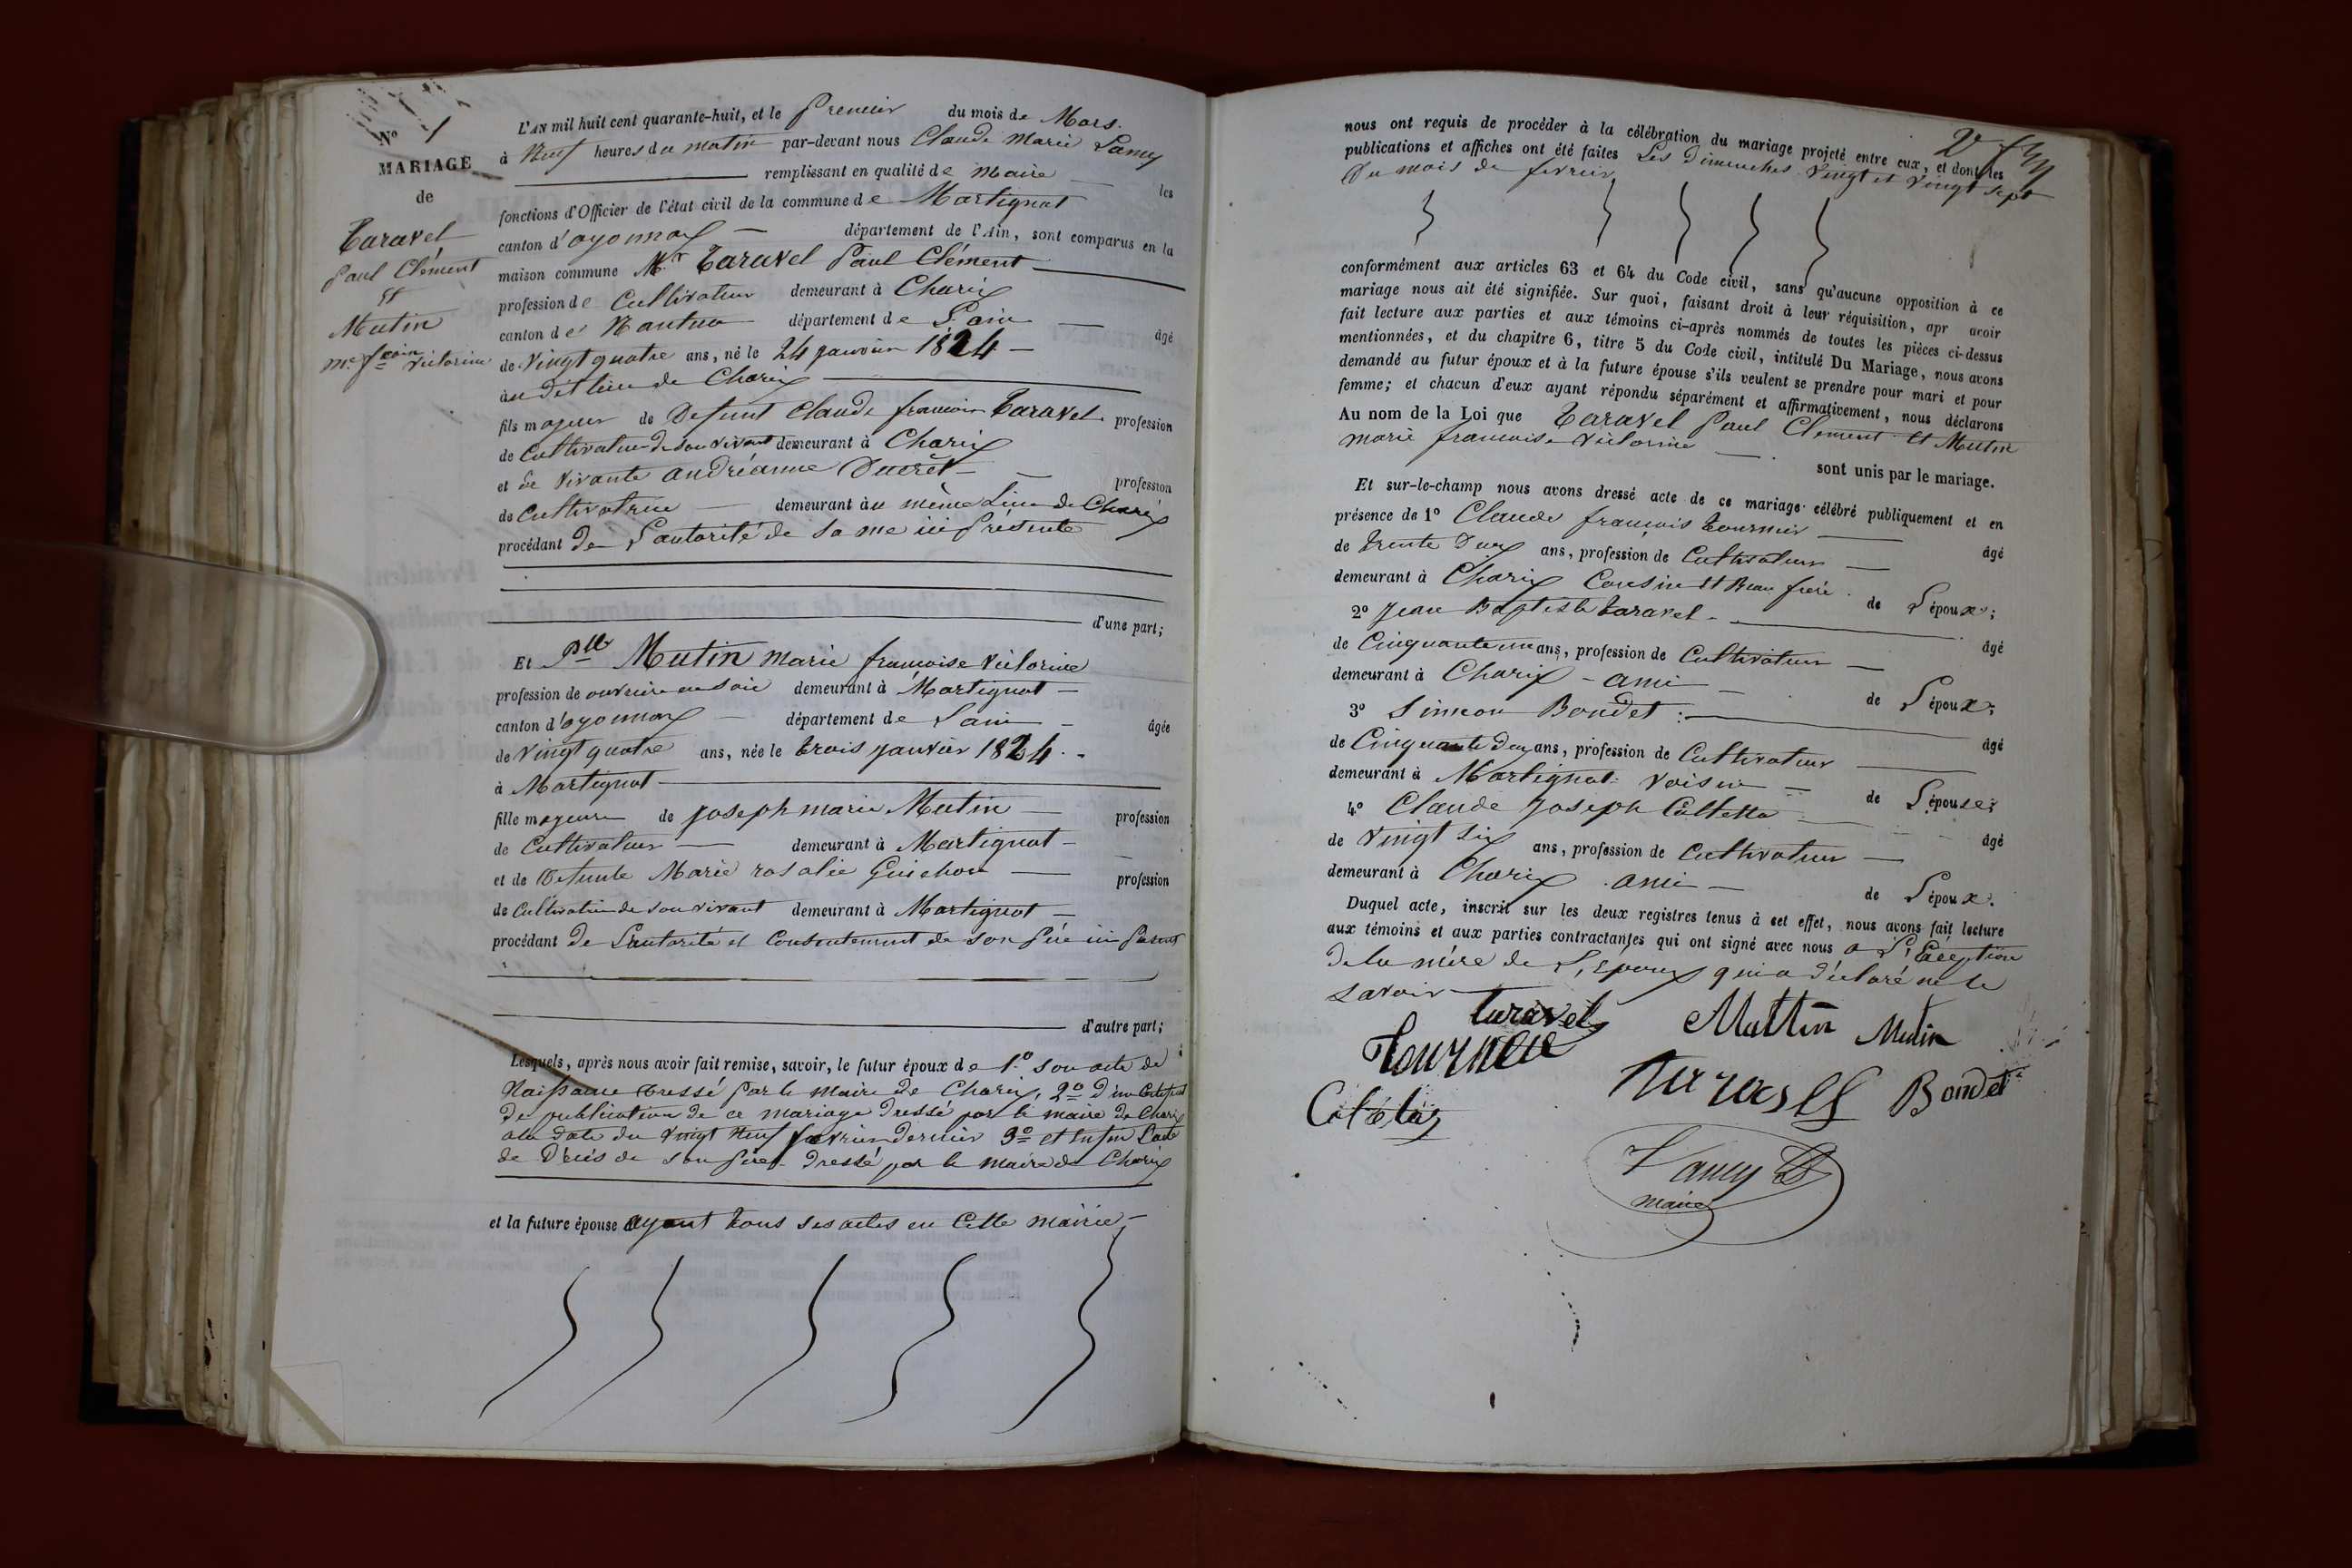 N° 1
MARIAGE
de
Taravel
Paul Clément
Et
Mutin
me fcoise Victorine
L'AN mil huit cent quarante-huit, et le premier du mois de Mars.
à Neuf heures du matin par-devant nous Claude Marie Lamy
remplissant en qualité de Maire les
fonctions d'Officier de l'état civil de la commune de Martignat
canton d'oyonnax département de l'Ain, sont comparus en la
maison commune Mr. Taravel Paul Clément
profession de Cultivateur demeurant à Charix
canton de Nantua département de L'ain âgé
de Vingt quatre ans, né le 24 janvier 1824
au dit lieu de Charix
fils majeur de Defunt Claude francois Taravel profession
de Cultivateur de son vivant demeurant à Charix
et de Vivante andréanne Ducrêt profession
de Cultivatrice demeurant au même Lieu de Charix
procédant de L'autorité de sa me ici présente
d'une part;
Et Dlle Mutin marie francoise victorine
profession de ouvrière en soie demeurant à Martignat
canton d'oyonnax département de L'ain âgée
de Vingt quatre ans, née le trois janvier 1824.
à Martignat
fille majeure de joseph marie Mutin profession
de Cultivateur demeurant à Martignat
et de Defunte Marie rosalie Guichon profession
de Cultivatrice de son vivant demeurant à Martignat
procédant de L'autorité et Consentement de son père ici présent
d'autre part;
Lesquels, après nous avoir fait remise, savoir, le futur époux de 1.° son acte de
Naissance Dressé par le maire de Charix, 2° d'un Certificat
De publication de ce mariage Dressé par le maire de Charix
a la Date du Vingt Neuf fevrier dernier 3° et enfin L'acte
de Décés de son père Dressé par le maire de Charix
et la future épouse ayant tous ses actes en Cette mairie
nous ont requis de procéder à la célébration du mariage projeté entre eux, et dont les
publications et affiches ont été faites Les Dimenches Vingt et Vingt sept
Du mois de fevrier
conformément aux articles 63 et 64 du Code civil, sans qu'aucune opposition à ce
mariage nous ait été signifiée. Sur quoi, faisant droit à leur réquisition, apr avoir
fait lecture aux parties et aux témoins ci-après nommés de toutes les pièces ci-dessus
mentionnées, et du chapitre 6, titre 5 du Code civil, intitulé Du Mariage, nous avons
demandé au futur époux et à la future épouse s'ils veulent se prendre pour mari et pour
femme; et chacun d'eux ayant répondu séparément et affirmativement, nous déclarons
Au nom de la Loi que Taravel Paul Clement Et Mutin
marie francoise victorine
sont unis par le mariage.
Et sur-le-champ nous avons dressé acte de ce mariage célébré publiquement et en
présence de 1° Claude francois tournier âgé
de trente Deux ans, profession de Cultivateur
demeurant à Charix Cousin Et Beau frere de L'époux;
2° Jean Baptiste taravel âgé
de Cinquante un ans, profession de Cultivateur
demeurant à Charix - ami de L'époux;
3° Simeon Bondet âgé
de Cinquante deux ans, profession de Cultivateur
demeurant à Martignat voisin de L'épouse;
4° Claude Joseph âgé
de Vingt six ans, profession de Cultivateur
demeurant à Charix ami de L'époux.
Duquel acte, inscrit sur les deux registres tenus à cet effet, nous avons fait lecture
aux témoins et aux parties contractantes qui ont signé avec nous a L'Exception
De la mére de L'Epoux qui a déclaré ne le
savoir
taravel Mutin
Bondet
Lamy
maire